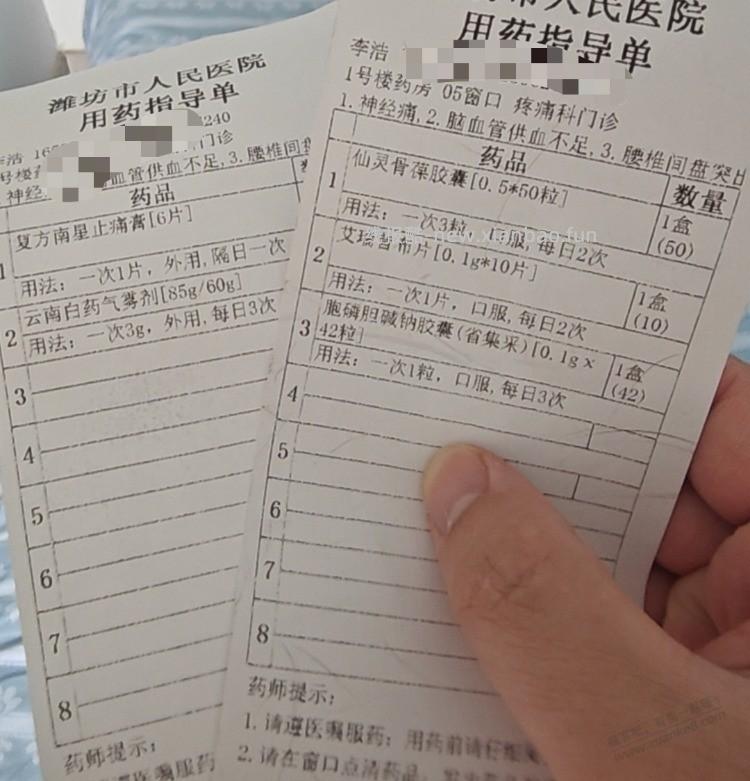 潍坊市人民医院
用药指导单
240
李浩 16
门诊
神经
血管供血不足,3. 腰椎间盘
药品
1
复方南星止痛膏[6片]
用法: 一次1片, 外用, 隔日一次
2
云南白药气雾剂[85g/60g]
用法: 一次3g, 外用, 每日3次
3
4
5
6
7
8
药师提示:
1. 请遵医嘱服药
市人民医院
用药指导单
李浩
1号楼药房 05窗口 疼痛科门诊
1. 神经痛, 2. 脑血管供血不足, 3. 腰椎间盘突出
药品 数量
1
仙灵骨葆胶囊[0.5*50粒]
用法: 一次3粒, 口服, 每日2次
1盒
(50)
2
艾瑞昔布片[0.1g*10片]
用法: 一次1片, 口服, 每日2次
1盒
(10)
3
胞磷胆碱钠胶囊(省集采)[0.1g x
42粒]
用法: 一次1粒, 口服, 每日3次
1盒
(42)
4
5
6
7
8
药师提示:
1. 请遵医嘱服药; 用药前请仔细
2. 请在窗口点清药品,
new.xianbao.fun